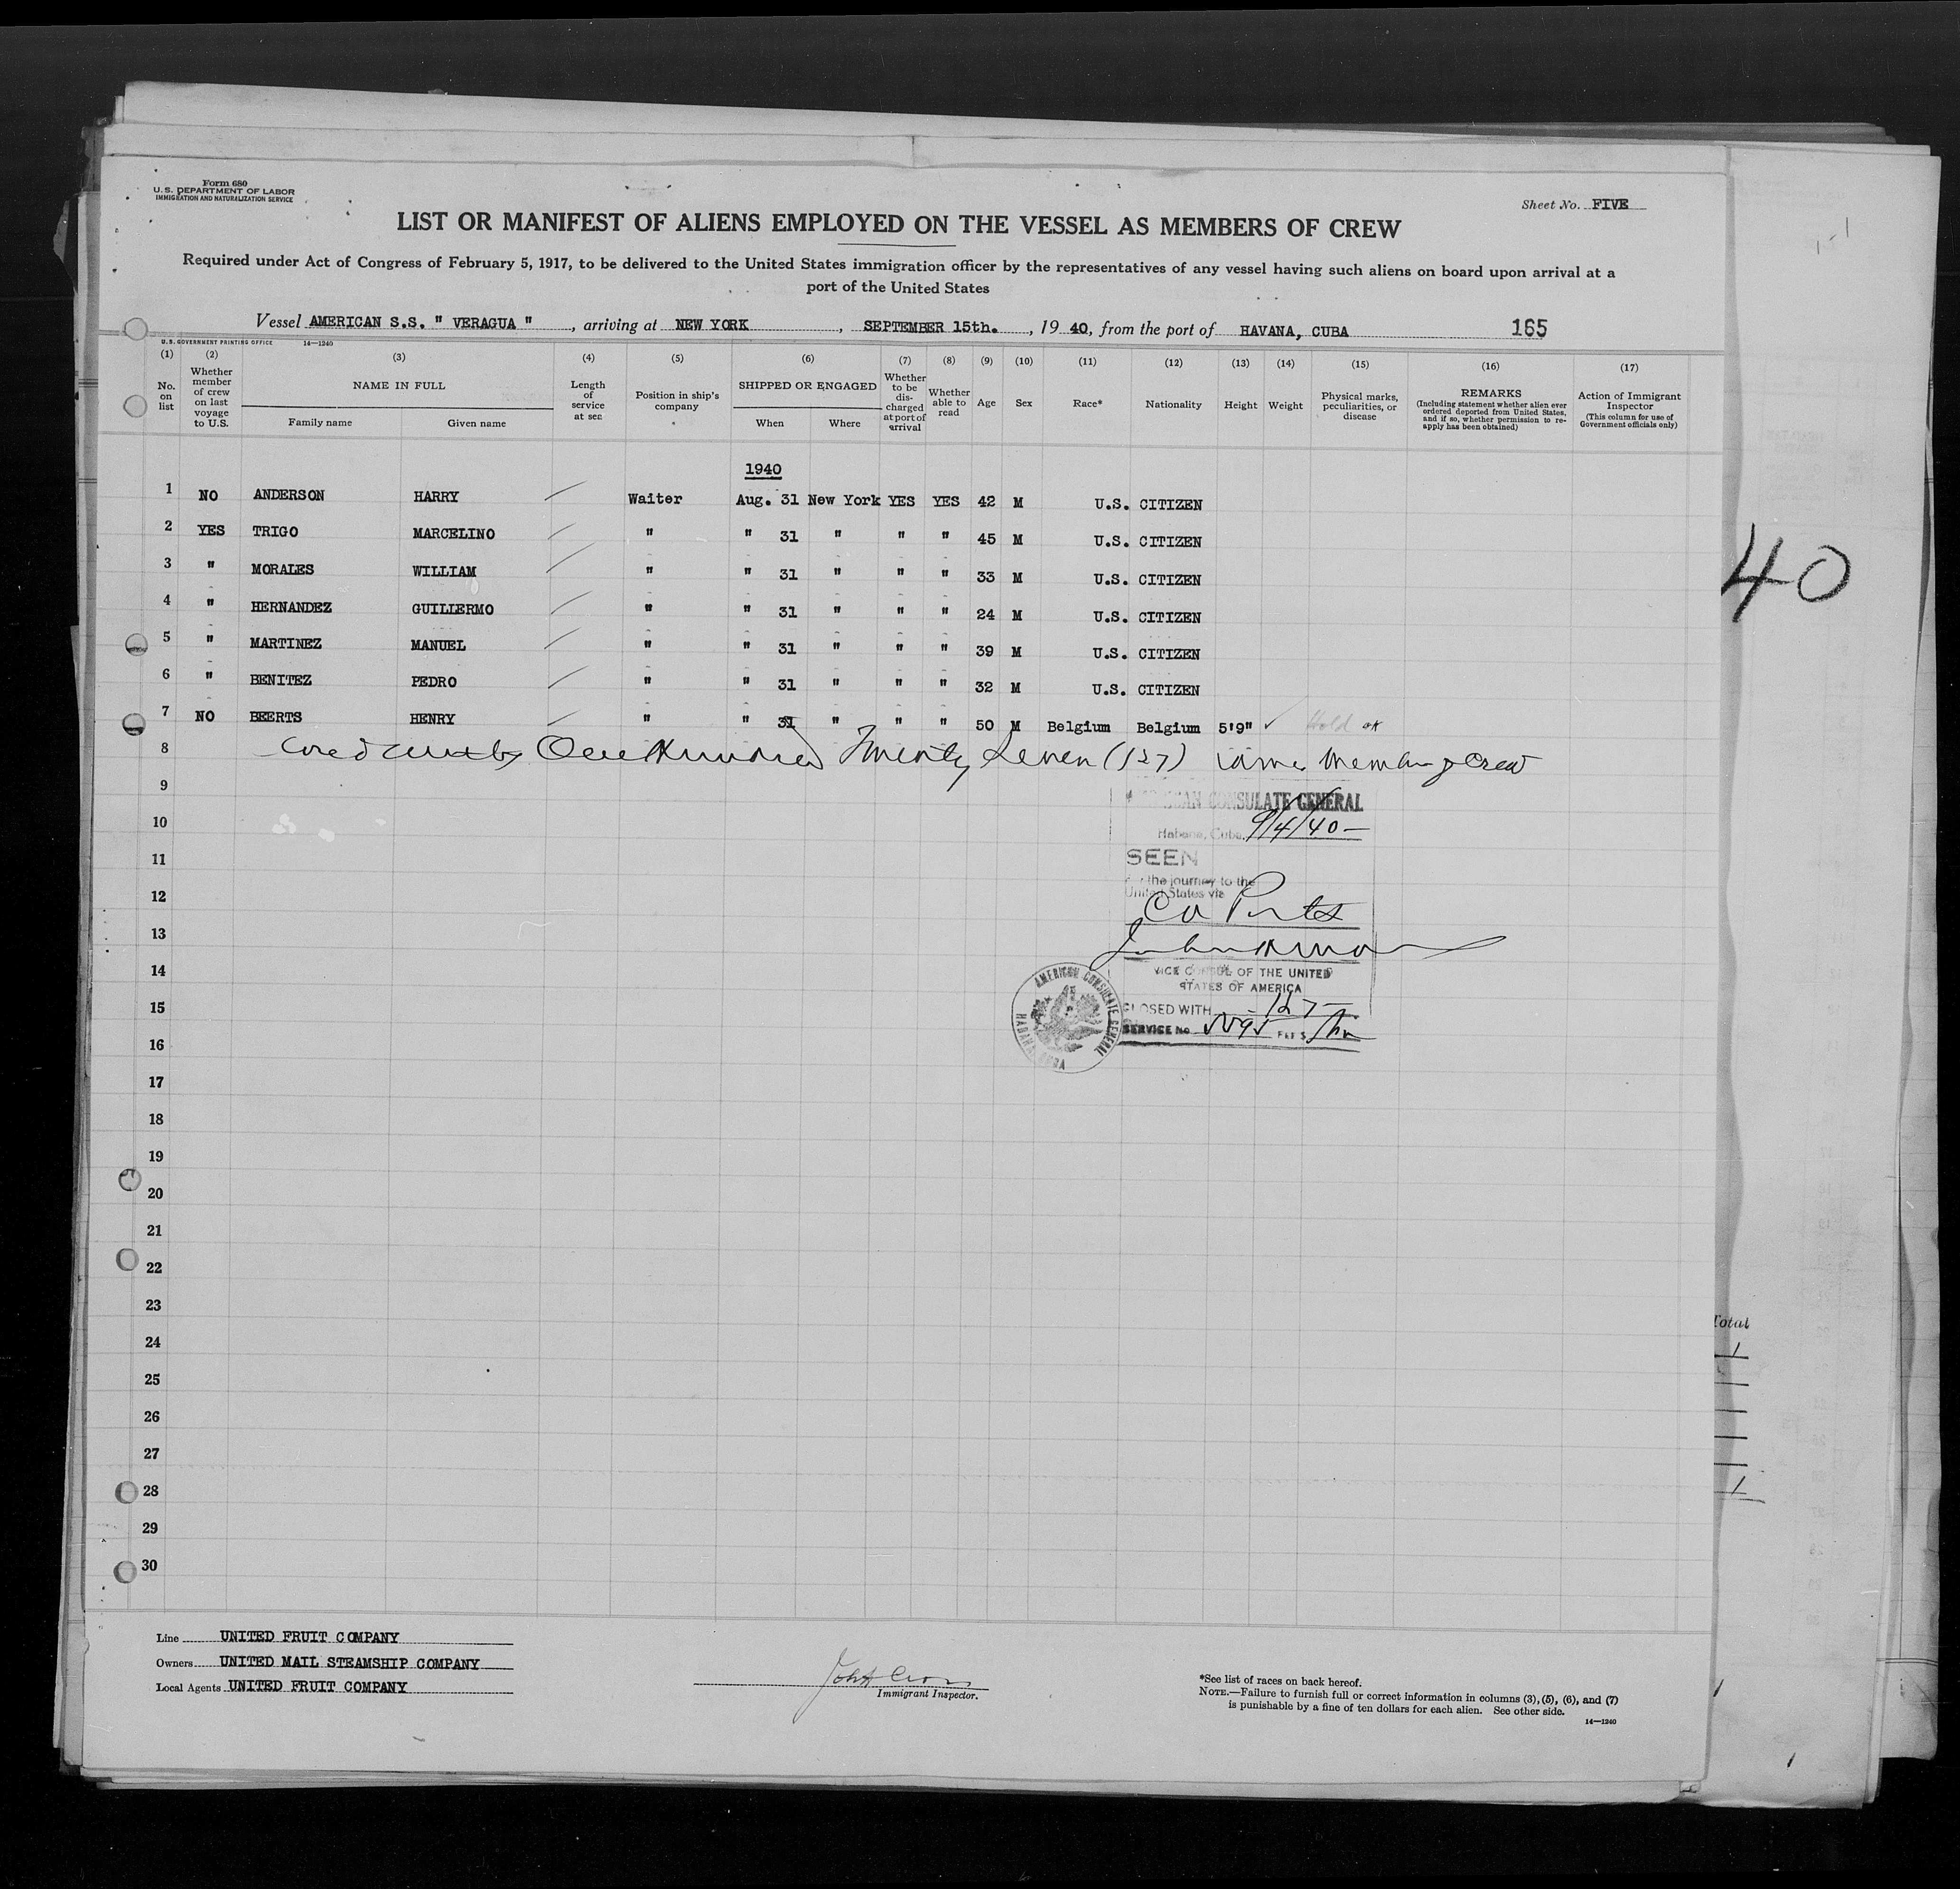 Form 680
U.S. DEPARTMENT OF LABOR
IMMIGRATION AND NATURALIZATION SERVICE
Sheet No. FIVE
LIST OR MANIFEST OF ALIENS EMPLOYED ON THE VESSEL AS MEMBERS OF CREW
Required under Act of Congress of February 5, 1917, to be delivered to the United States immigration officer by the representatives of any vessel having such aliens on board upon arrival at a
port of the United States
Vessel AMERICAN S.S. " VERAGUA " , arriving at NEW YORK , SEPTEMBER 15th. , 19 40, from the port of HAVANA, CUBA 165
U.S. GOVERNMENT PRINTING OFFICE 14—1240
(1) (2) (3) (4) (5) (6) (7) (8) (9) (10) (11) (12) (13) (14) (15) (16) (17)
No. on list
Whether member of crew on last voyage to U.S.
NAME IN FULL
Family name Given name
Length of service at sea
Position in ship's company
SHIPPED OR ENGAGED
When Where
Whether to be discharged at port of arrival
Whether able to read
Age
Sex
Race*
Nationality
Height
Weight
Physical marks, peculiarities, or disease
REMARKS
(Including statement whether alien ever ordered deported from United States, and if so, whether permission to reapply has been obtained)
Action of Immigrant Inspector
(This column for use of Government officials only)
1940
1 NO ANDERSON HARRY Waiter Aug. 31 New York YES YES 42 M U.S. CITIZEN
2 YES TRIGO MARCELINO " " 31 " " " 45 M U.S. CITIZEN
3 " MORALES WILLIAM " " 31 " " " 33 M U.S. CITIZEN
4 " HERNANDEZ GUILLERMO " " 31 " " " 24 M U.S. CITIZEN
5 " MARTINEZ MANUEL " " 31 " " " 39 M U.S. CITIZEN
6 " BENITEZ PEDRO " " 31 " " " 32 M U.S. CITIZEN
7 NO BEERTS HENRY " " 31 " " " 50 M Belgium Belgium 5'9" ✓ Hold ok
8 One Hundred Twenty Seven (127) Members of Crew
9
10
11
12
13
14
15
16
17
18
19
20
21
22
23
24
25
26
27
28
29
30
AMERICAN CONSULATE GENERAL
Habana, Cuba, 9/4/40—
SEEN
For the journey to the
United States via
VICE CONSUL OF THE UNITED
STATES OF AMERICA
CLOSED WITH 127—
SERVICE No. FEE $
AMERICAN CONSULATE GENERAL
HABANA, CUBA
40
Total
Line UNITED FRUIT COMPANY
Owners UNITED MAIL STEAMSHIP COMPANY
Local Agents UNITED FRUIT COMPANY
Immigrant Inspector.
*See list of races on back hereof.
NOTE.—Failure to furnish full or correct information in columns (3), (5), (6), and (7)
is punishable by a fine of ten dollars for each alien. See other side.
14—1240